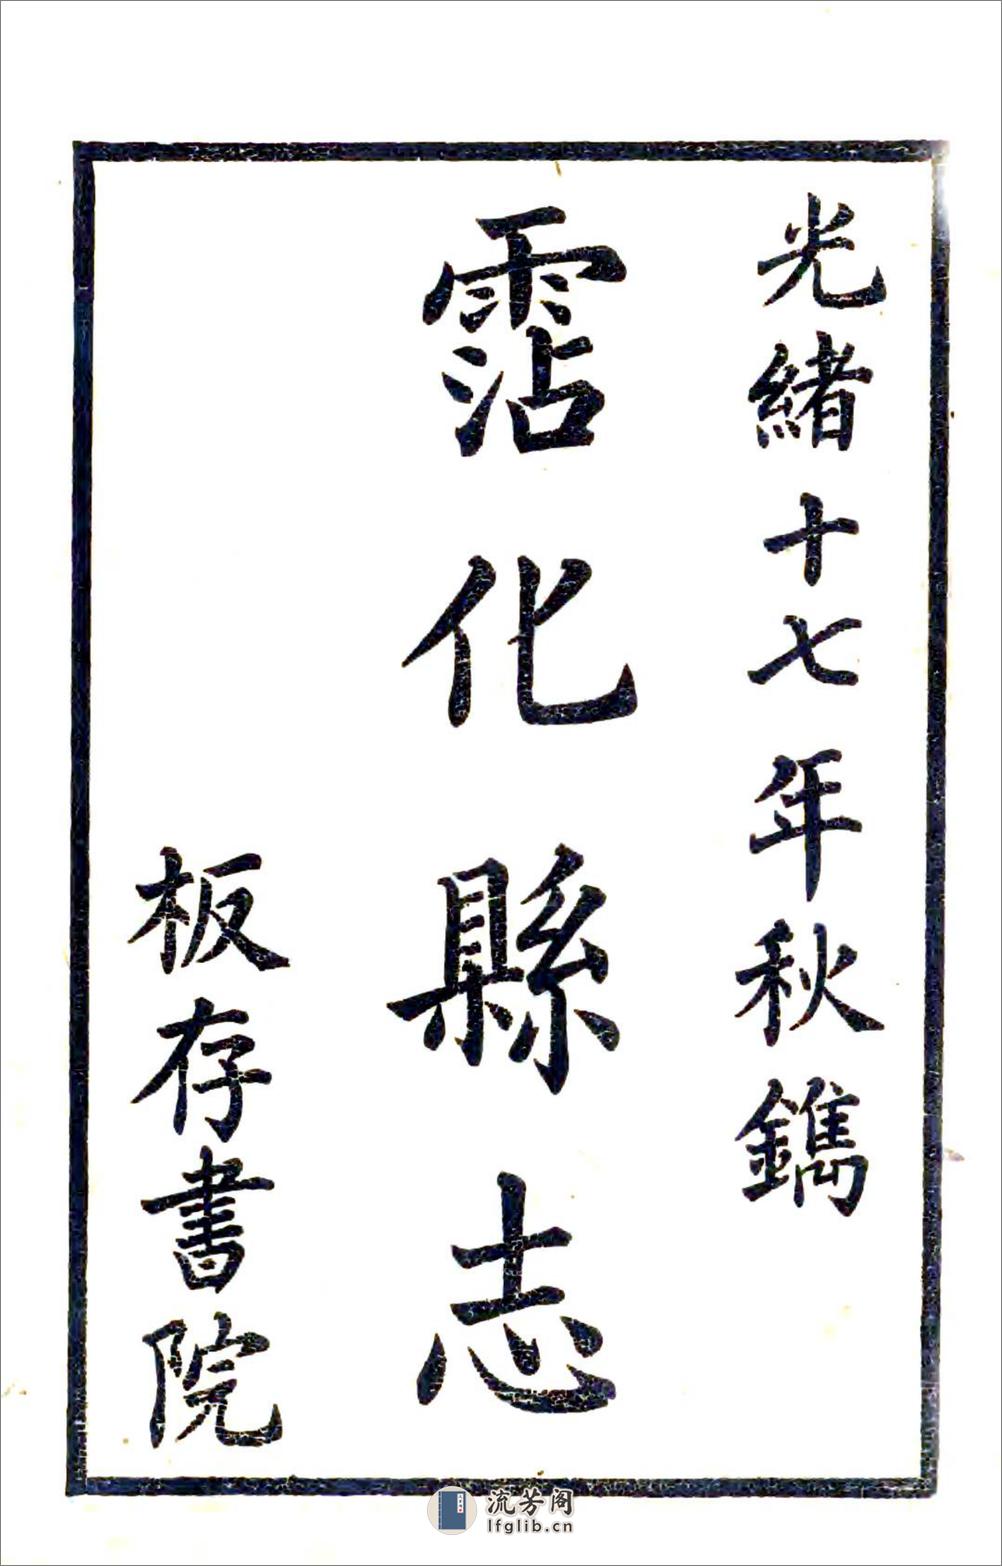 光緒十七年秋鐫
霑化縣志
板存書院
流芳阁
lfglib.cn